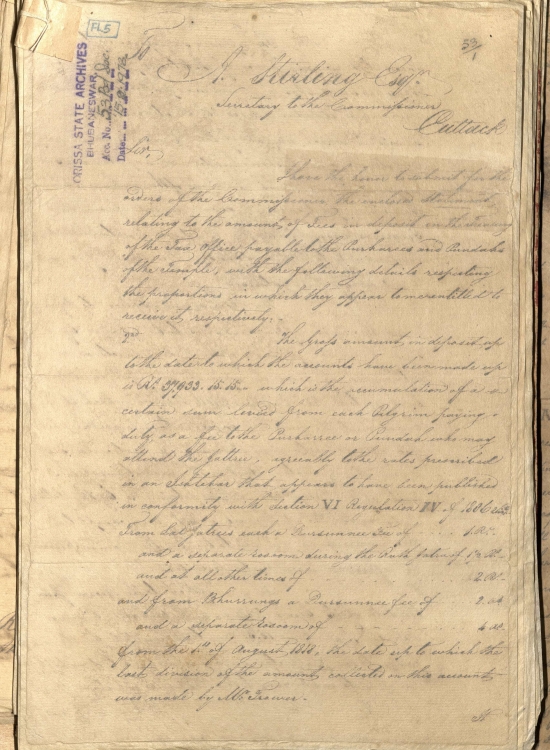 FL5
53/1
ORISSA STATE ARCHIVES
BHUBANESWAR
Acc. No. 53
Date
To
A. Stirling Esqr.
Secretary to the Commissioner
Cuttack
Sir,
I have the honor to submit for the
orders of the Commissioner the enclosed Statement
relating to the amount of Fees in deposit in the
of the Tax Office payable to the Purharees and Pundahs
of the Temple, with the following details respecting
the proportions in which they appear to be entitled to
receive it, respectively.
2nd The Gross amount in deposit up
to the date to which the accounts have been made up
is Rs. 37933. 15. 15. which is the accumulation of a
certain sum levied from each Pilgrim paying
duty, as a fee to the Purharree or Pundah who may
attend the , agreeably to the rates prescribed
in an that appears to have been published
in conformity with Section VI Regulation IV of 1806
From Lal Jatrees each a Fee of 1. Rs.
and a separate during the Ruth of
and at all other times of 2 Rs.
and from Bhurrungs a fee of 2. as
and a separate of 4 as.
from the 1st of August, the date up to which the
last division of the amount collected on this account,
was made by Mr. Trower.
It